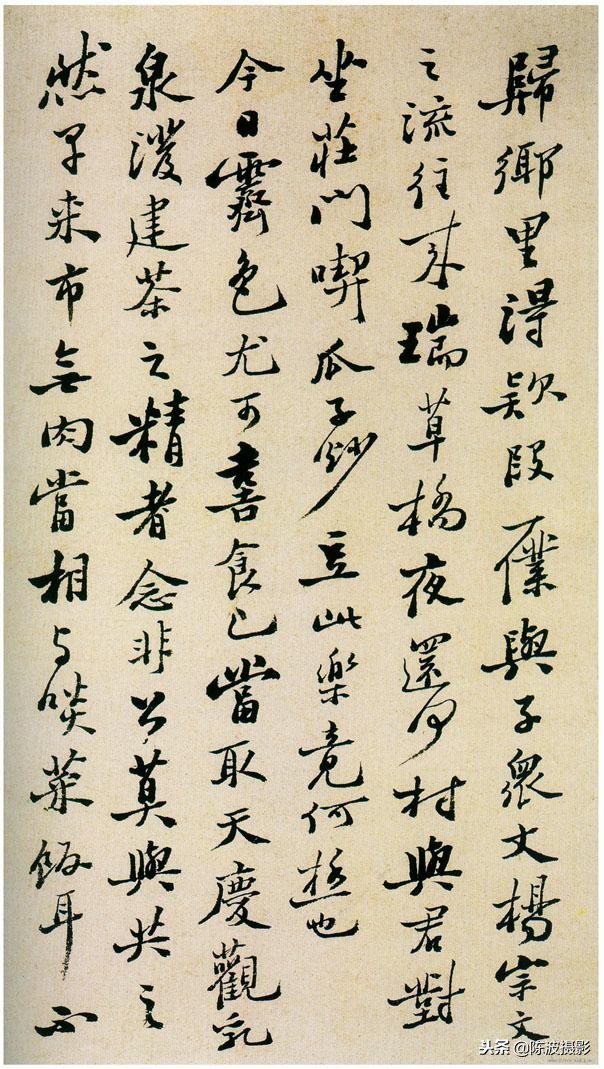 歸鄉里得款段一僕與子眾丈楊宗文
之流往來瑞草橋夜還何村與君對
坐莊門喫瓜子炒豆此樂竟何極也
今日霽色尤可喜食已當取天慶觀乳
泉潑建茶之精者念非公莫與共之
然早来市無肉當相与啖菜飯耳不
头条 @陈波摄影